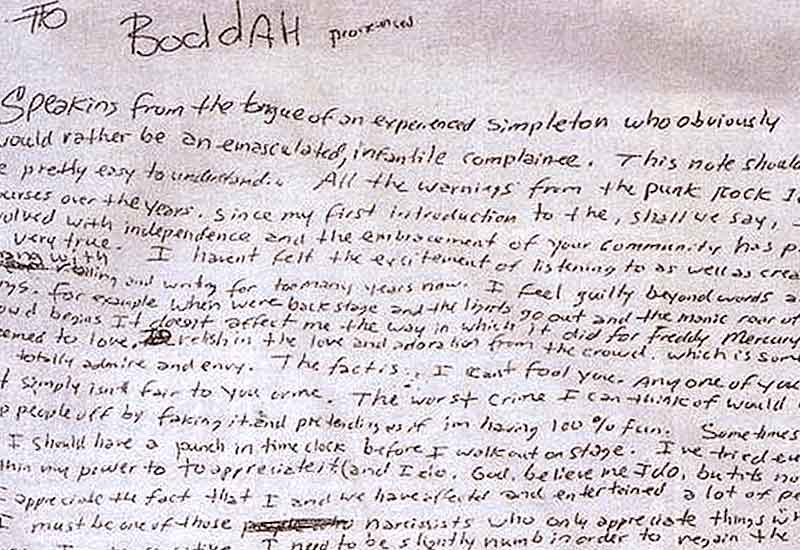 To BoddAH pronounced
Speaking from the tongue of an experienced simpleton who obviously
would rather be an emasculated, infantile complainee. This note should
e pretty easy to understand. All the warnings from the punk rock 10
ourses over the years. Since my first introduction to the, shall we say,
volved with independence and the embracement of your community has p
very true. I havent felt the excitement of listening to as well as crea
with
and writing for too many years now. I feel guilty beyond words a
ngs. For example when were backstage and the lights go out and the manic roar of
owd begins It doesnt affect me the way in which it did for Freddy Mercury
eemed to love, relish in the love and adoration from the crowd. which is som
totally admire and envy. The fact is, I cant fool you. Any one of you
t simply isnt fair to you or me. The worst crime I can think of would
p people off by faking it and pretending as if im having 100% fun. Sometimes
I should have a punch in time clock before I walk out on stage. I've tried eve
thin my power to to appreciate it (and I do. God, believe me I do, but its no
appreciate the fact that I and we have affected and entertained a lot of pe
I must be one of those narcissists who only appreciate things wh
I need to be slightly numb in order to regain the